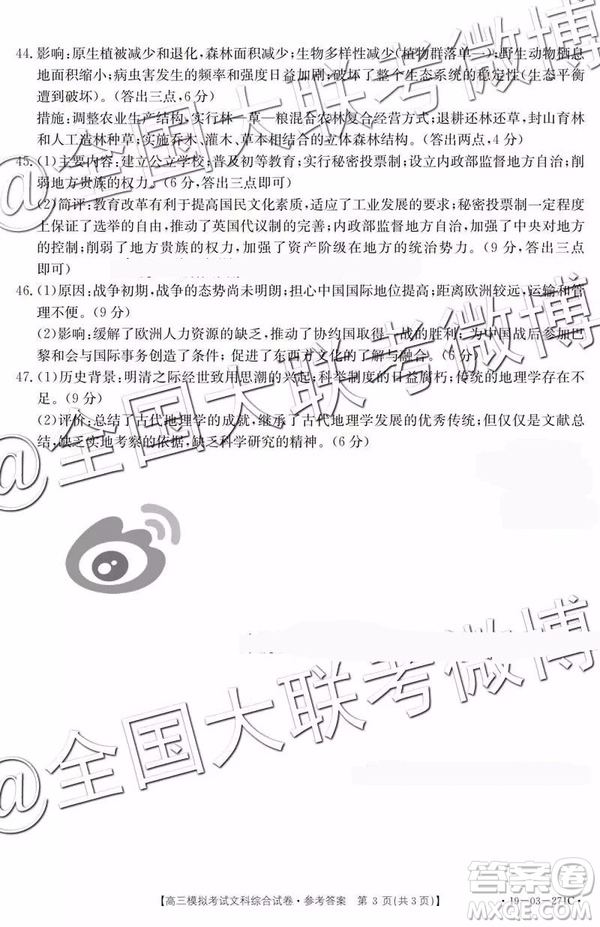 44. 影响:原生植被减少和退化,森林面积减少;生物多样性减少(植物群落单一);野生动物栖息
地面积缩小;病虫害发生的频率和强度日益加剧;破坏了整个生态系统的稳定性(生态平衡
遭到破坏)。(答出三点,6 分)
措施:调整农业生产结构,实行林—草—粮混合农林复合经营方式;退耕还林还草,封山育林
和人工造林种草;实施乔木、灌木、草本相结合的立体森林结构。(答出两点,4 分)
45. (1)主要内容:建立公立学校,普及初等教育;实行秘密投票制;设立内政部监督地方自治;削
弱地方贵族的权力。(6 分,答出三点即可)
(2)简评:教育改革有利于提高国民文化素质,适应了工业发展的要求;秘密投票制一定程度
上保证了选举的自由,推动了英国代议制的完善;内政部监督地方自治,加强了中央对地方
的控制;削弱了地方贵族的权力,加强了资产阶级在地方的统治势力。(9 分,答出三点
即可)
46. (1)原因:战争初期,战争的态势尚未明朗;担心中国国际地位提高;距离欧洲较远,运输和管
理不便。(9 分)
(2)影响:缓解了欧洲人力资源的缺乏,推动了协约国取得一战的胜利;为中国战后参加巴
黎和会与国际事务创造了条件;促进了东西方文化的了解与融合。(6 分)
47. (1)历史背景:明清之际经世致用思潮的兴起;科举制度的日益腐朽;传统的地理学存在不
足。(9 分)
(2)评价:总结了古代地理学的成就,继承了古代地理学发展的优秀传统;但仅仅是文献总
结,缺乏实地考察的依据,缺乏科学研究的精神。(6 分)
@全国大联考微博
@全国大联考微博
【高三模拟考试文科综合试卷·参考答案 第 3 页(共 3 页)】
·19-03-271C·